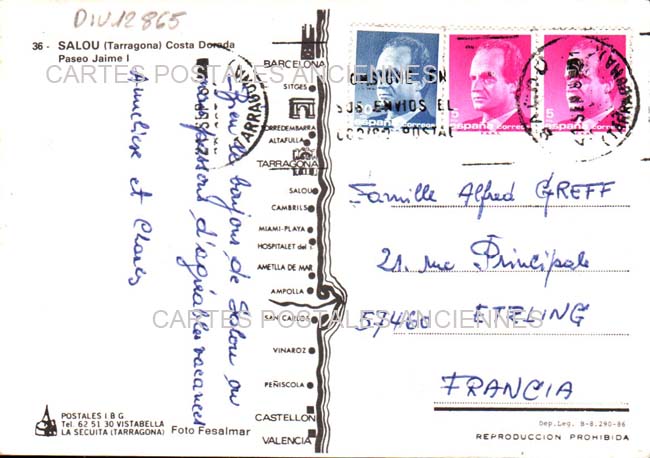 DIV12865
36 - SALOU (Tarragona) Costa Dorada
Paseo Jaime I
CARTES POSTALES ANCIENNES
BARCELONA
SITGES
TORREDEMBARRA
ALTAFULLA
TARRAGONA
SALOU
CAMBRILS
MIAMI-PLAYA
HOSPITALET del I
AMETLLA DE MAR
AMPOLLA
SAN CARLOS
VINAROZ
PEÑISCOLA
CASTELLON
VALENCIA
Bien le bonjour de Salou ou
nous passons d'agréables vacances
Anneliese et Charles
España correos
5 España correos
5 España correos
EN
SUS ENVIOS EL
CODIGO POSTAL
TARRAGONA
Famille Alfred GREFF
21. rue Principale
57460 ETZLING
FRANCIA
CARTES POSTALES ANCIENNES
POSTALES I B G
Tel. 62 51 30 VISTABELLA
LA SECUITA (TARRAGONA)
Foto Fesalmar
Dep. Leg. B-8.290-86
REPRODUCCION PROHIBIDA